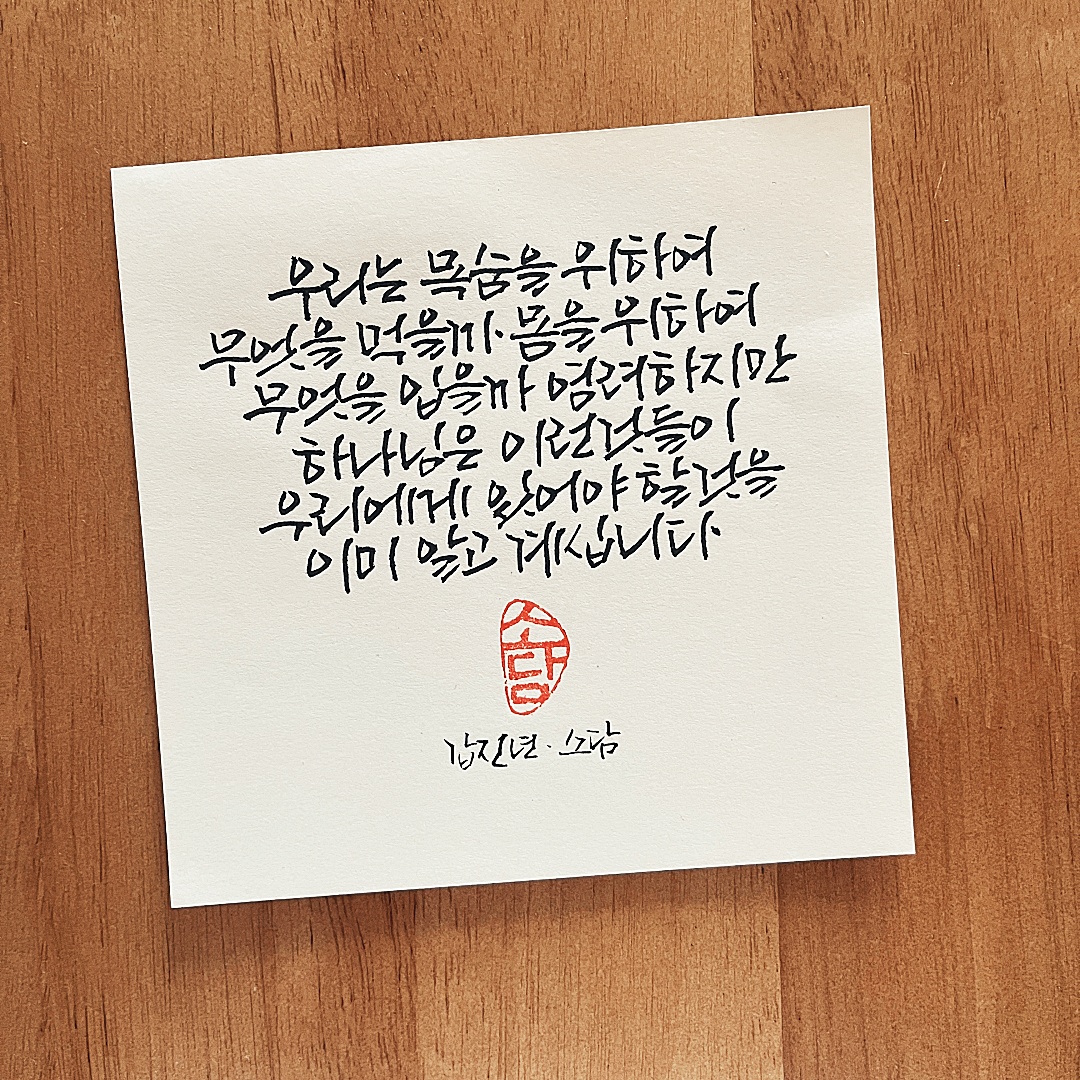 우리는 목숨을 위하여
무엇을 먹을까·몸을 위하여
무엇을 입을까 염려하지만
하나님은 이런것들이
우리에게 있어야 할것을
이미 알고 계십니다.
소담
갑진년·소담